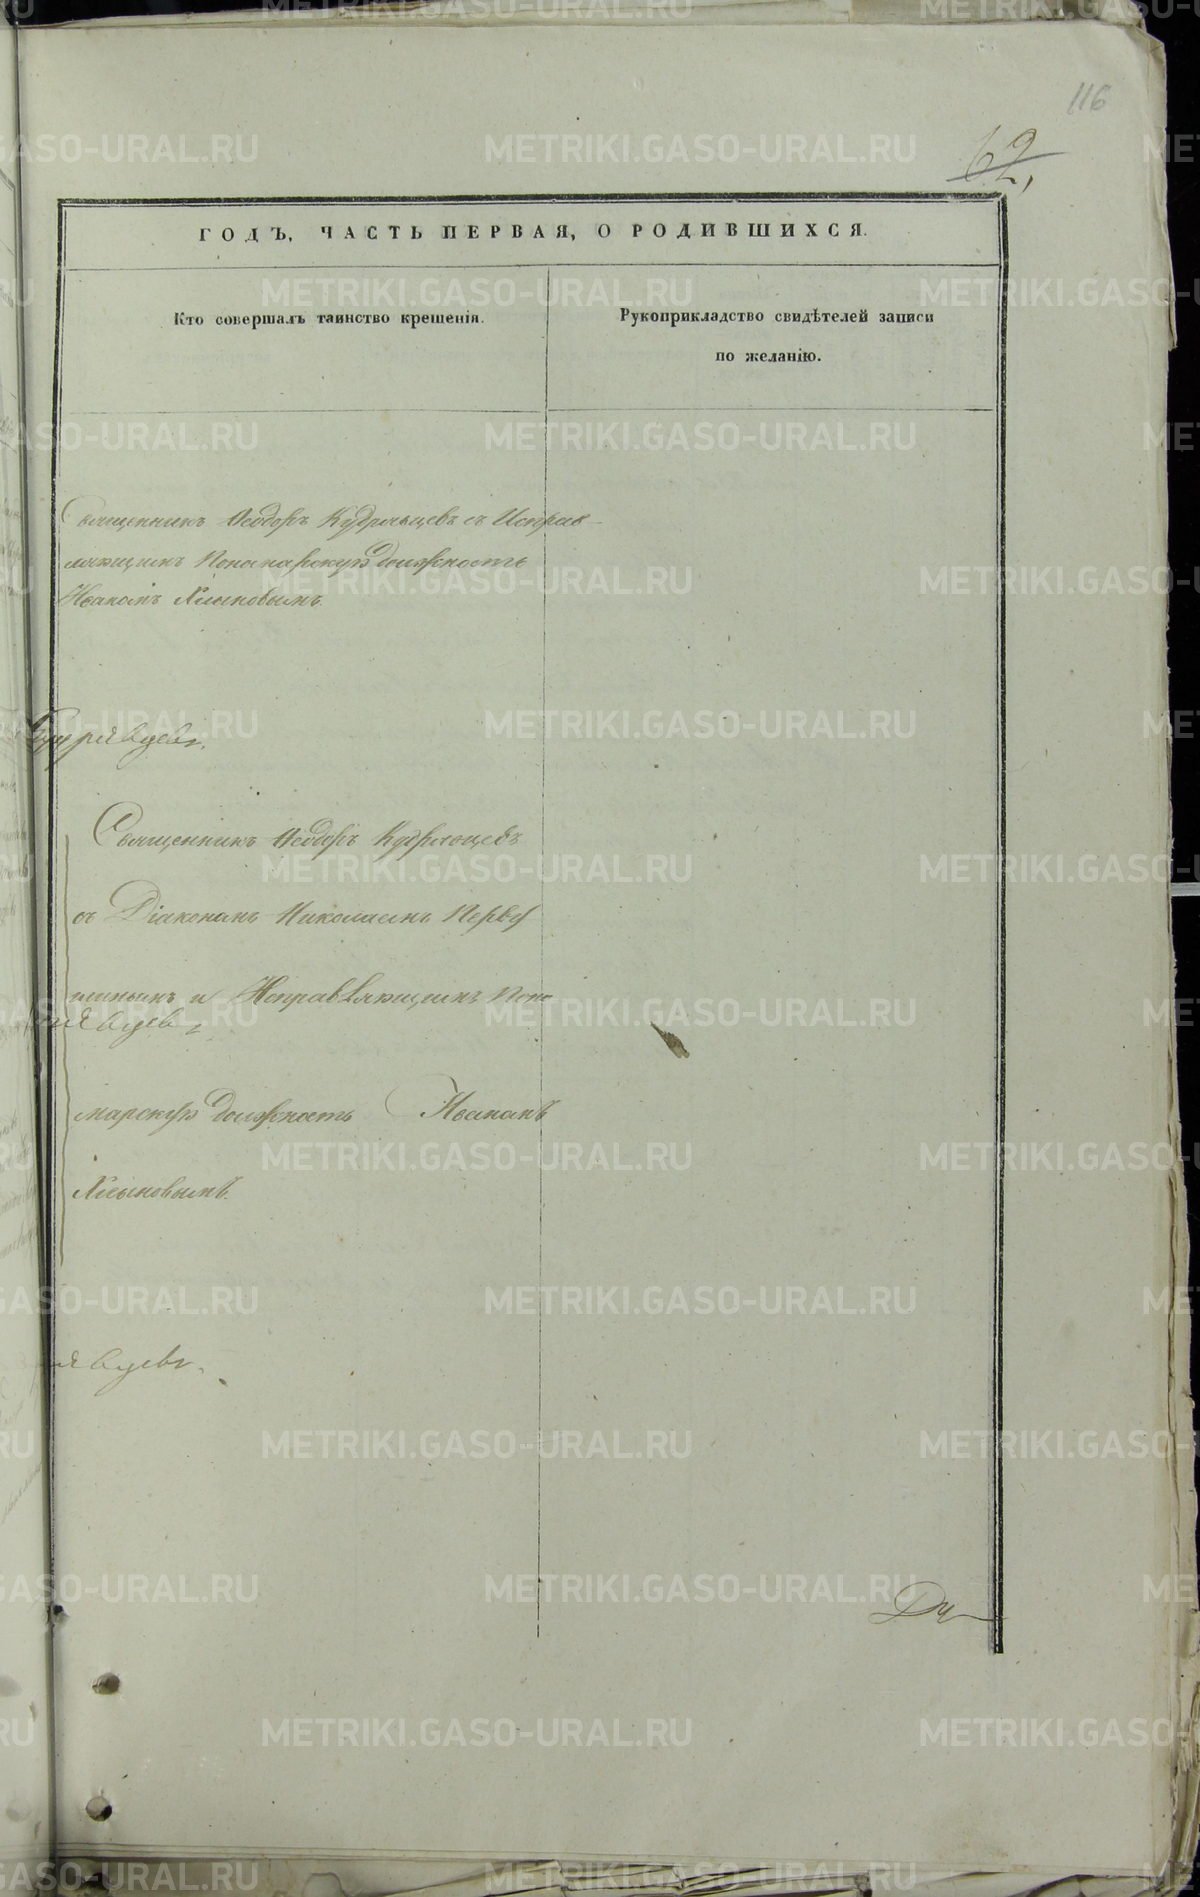 116
62
ГОДЪ, ЧАСТЬ ПЕРВАЯ, О РОДИВШИХСЯ.
Кто совершалъ таинство крещенія.
Рукоприкладство свидѣтелей записи
по желанію.
Священникъ Ѳеодоръ Кудрявцевъ съ Исправ-
ляющимъ Пономарскую должность
Иваномъ Хлыновымъ.
Кудрявцевъ.
Священникъ Ѳеодоръ Кудрявцевъ
съ Діакономъ Николаемъ Перву
шинымъ и Исправляющимъ Поно
рявцевъ
марскую должность Иваномъ
Хлыновымъ.
явцевъ.
METRIKI.GASO-URAL.RU